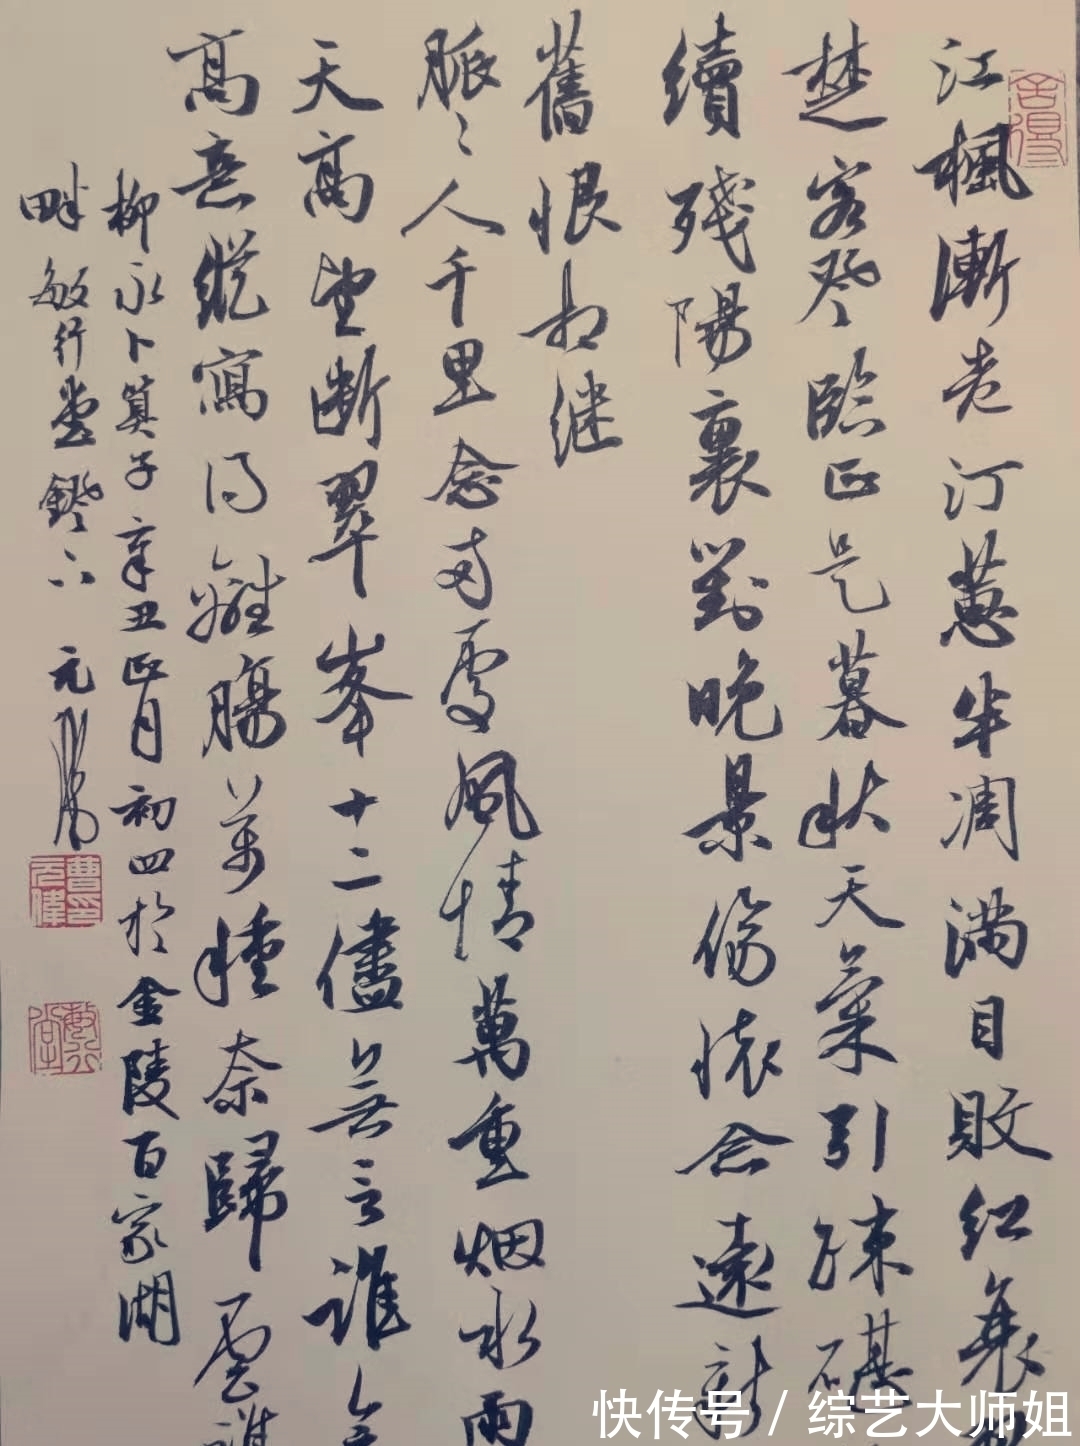 舍得
江楓漸老汀蕙半凋满目敗紅衰
楚客登臨正是暮秋天氣引疎碪
續殘陽裏對晚景傷懷念遠新
舊恨相继
脈〻人千里念兩處風情萬重烟水雨
天高望斷翠峯十二儘無言誰會
高意縱寫得離腸萬種奈歸雲誰
柳永卜算子辛丑正月初四於金陵百家湖
畔敏行堂鐙下 元偉
曹元偉印
敏行堂
快传号 / 综艺大师姐